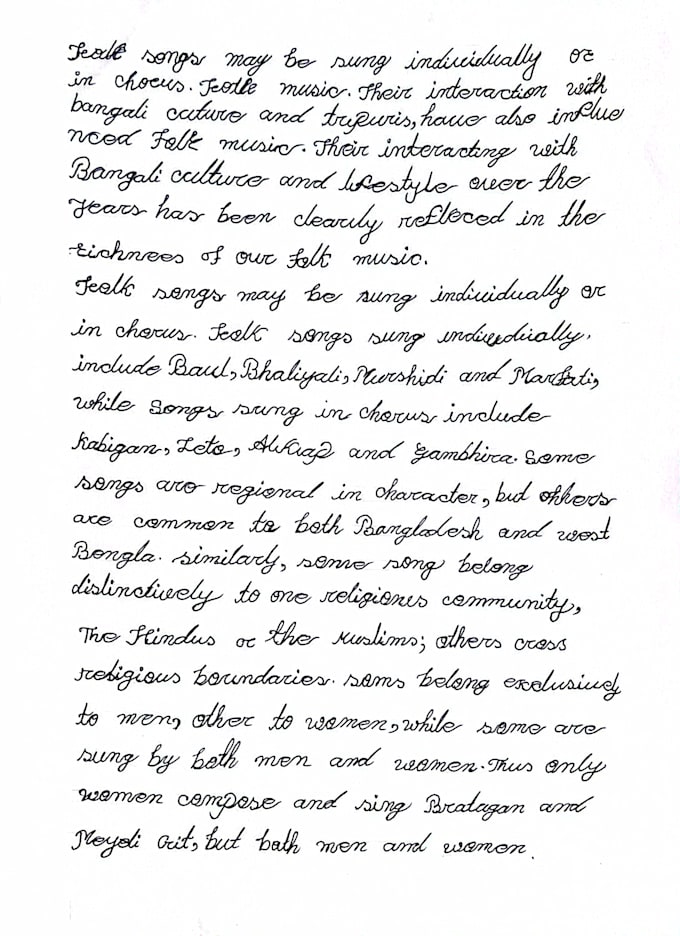 Folk songs may be sung individually or
in chorus. Folk music. Their interaction with
bangali cuture and tripuris, have also influe
nced Folk music. Their interacting with
Bangali culture and lifestyle over the
Years has been clearly refleced in the
richnees of our folk music.
Folk songs may be sung individually or
in chorus. Folk songs sung individually.
include Baul, Bhaliyali, Murshidi and Marfati,
while Songs sung in chorus include
Kabigan, Leto, Alkap and Gambhira. Some
songs are regional in character, but others
are common to both Bangladesh and west
Bengla. similarly, some song belong
distinctively to one religiones community,
The Hindus or the Muslims; others cross
religious boundaries. soms belong exclusively
to men, other to women, while some are
sung by both men and women. Thus only
women compose and sing Bratagan and
Meyeli Git, but both men and women.